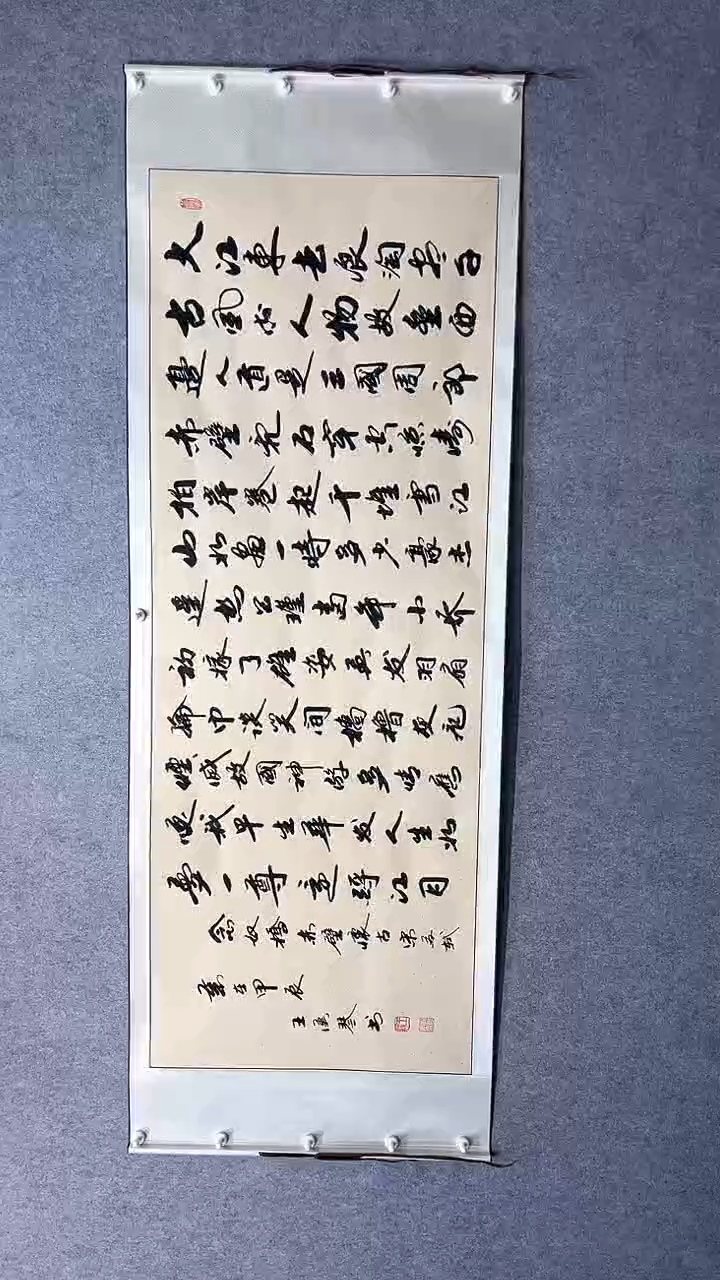 大江東去浪淘盡千
古風流人物故壘西
邊人道是三國周郎
赤壁亂石穿空驚濤
拍岸卷起千堆雪江
山如畫一時多少豪杰
遙想公瑾當年小喬
初嫁了雄姿英发羽扇
綸巾談笑間檣櫓灰飛
煙滅故國神游多情應
笑我早生華发人生如
夢一尊還酹江月
念奴嬌赤壁懷古宋苏軾
歲在甲辰
王琴书